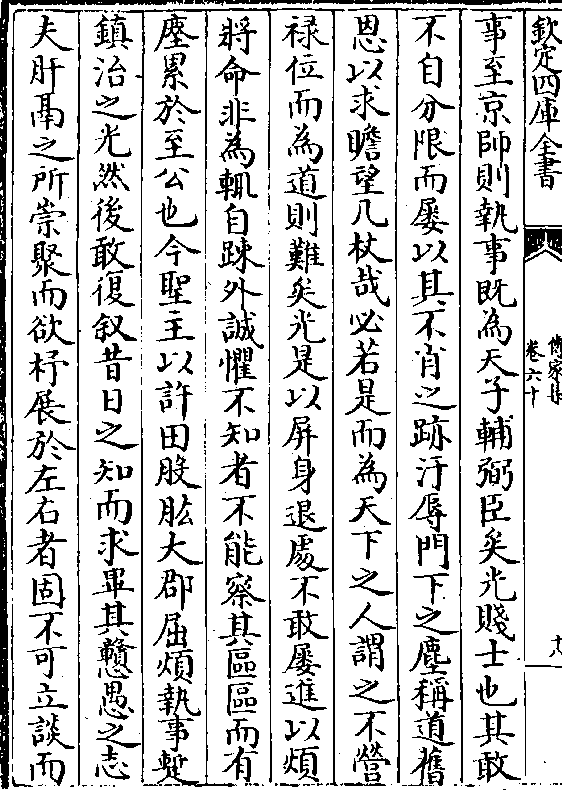 欽定四庫全書
傳家集
卷六十
十八
事至京師則執事既為天子輔弼臣矣光賤士也其敢
不自分限而屢以其不肖之跡汙辱門下之塵稱道舊
恩以求瞻望几杖哉必若是而為天下之人謂之不營
禄位而為道則難矣光是以屏身退處不敢屢進以煩
將命非為輒自踈外誠懼不知者不能察其區區而有
塵累於至公也今聖主以許田股肱大郡屈煩執事蹔
鎮治之光然後敢復叙昔日之知而求畢其戇愚之志
夫肝鬲之所崇聚而欲杼展於左右者固不可立談而